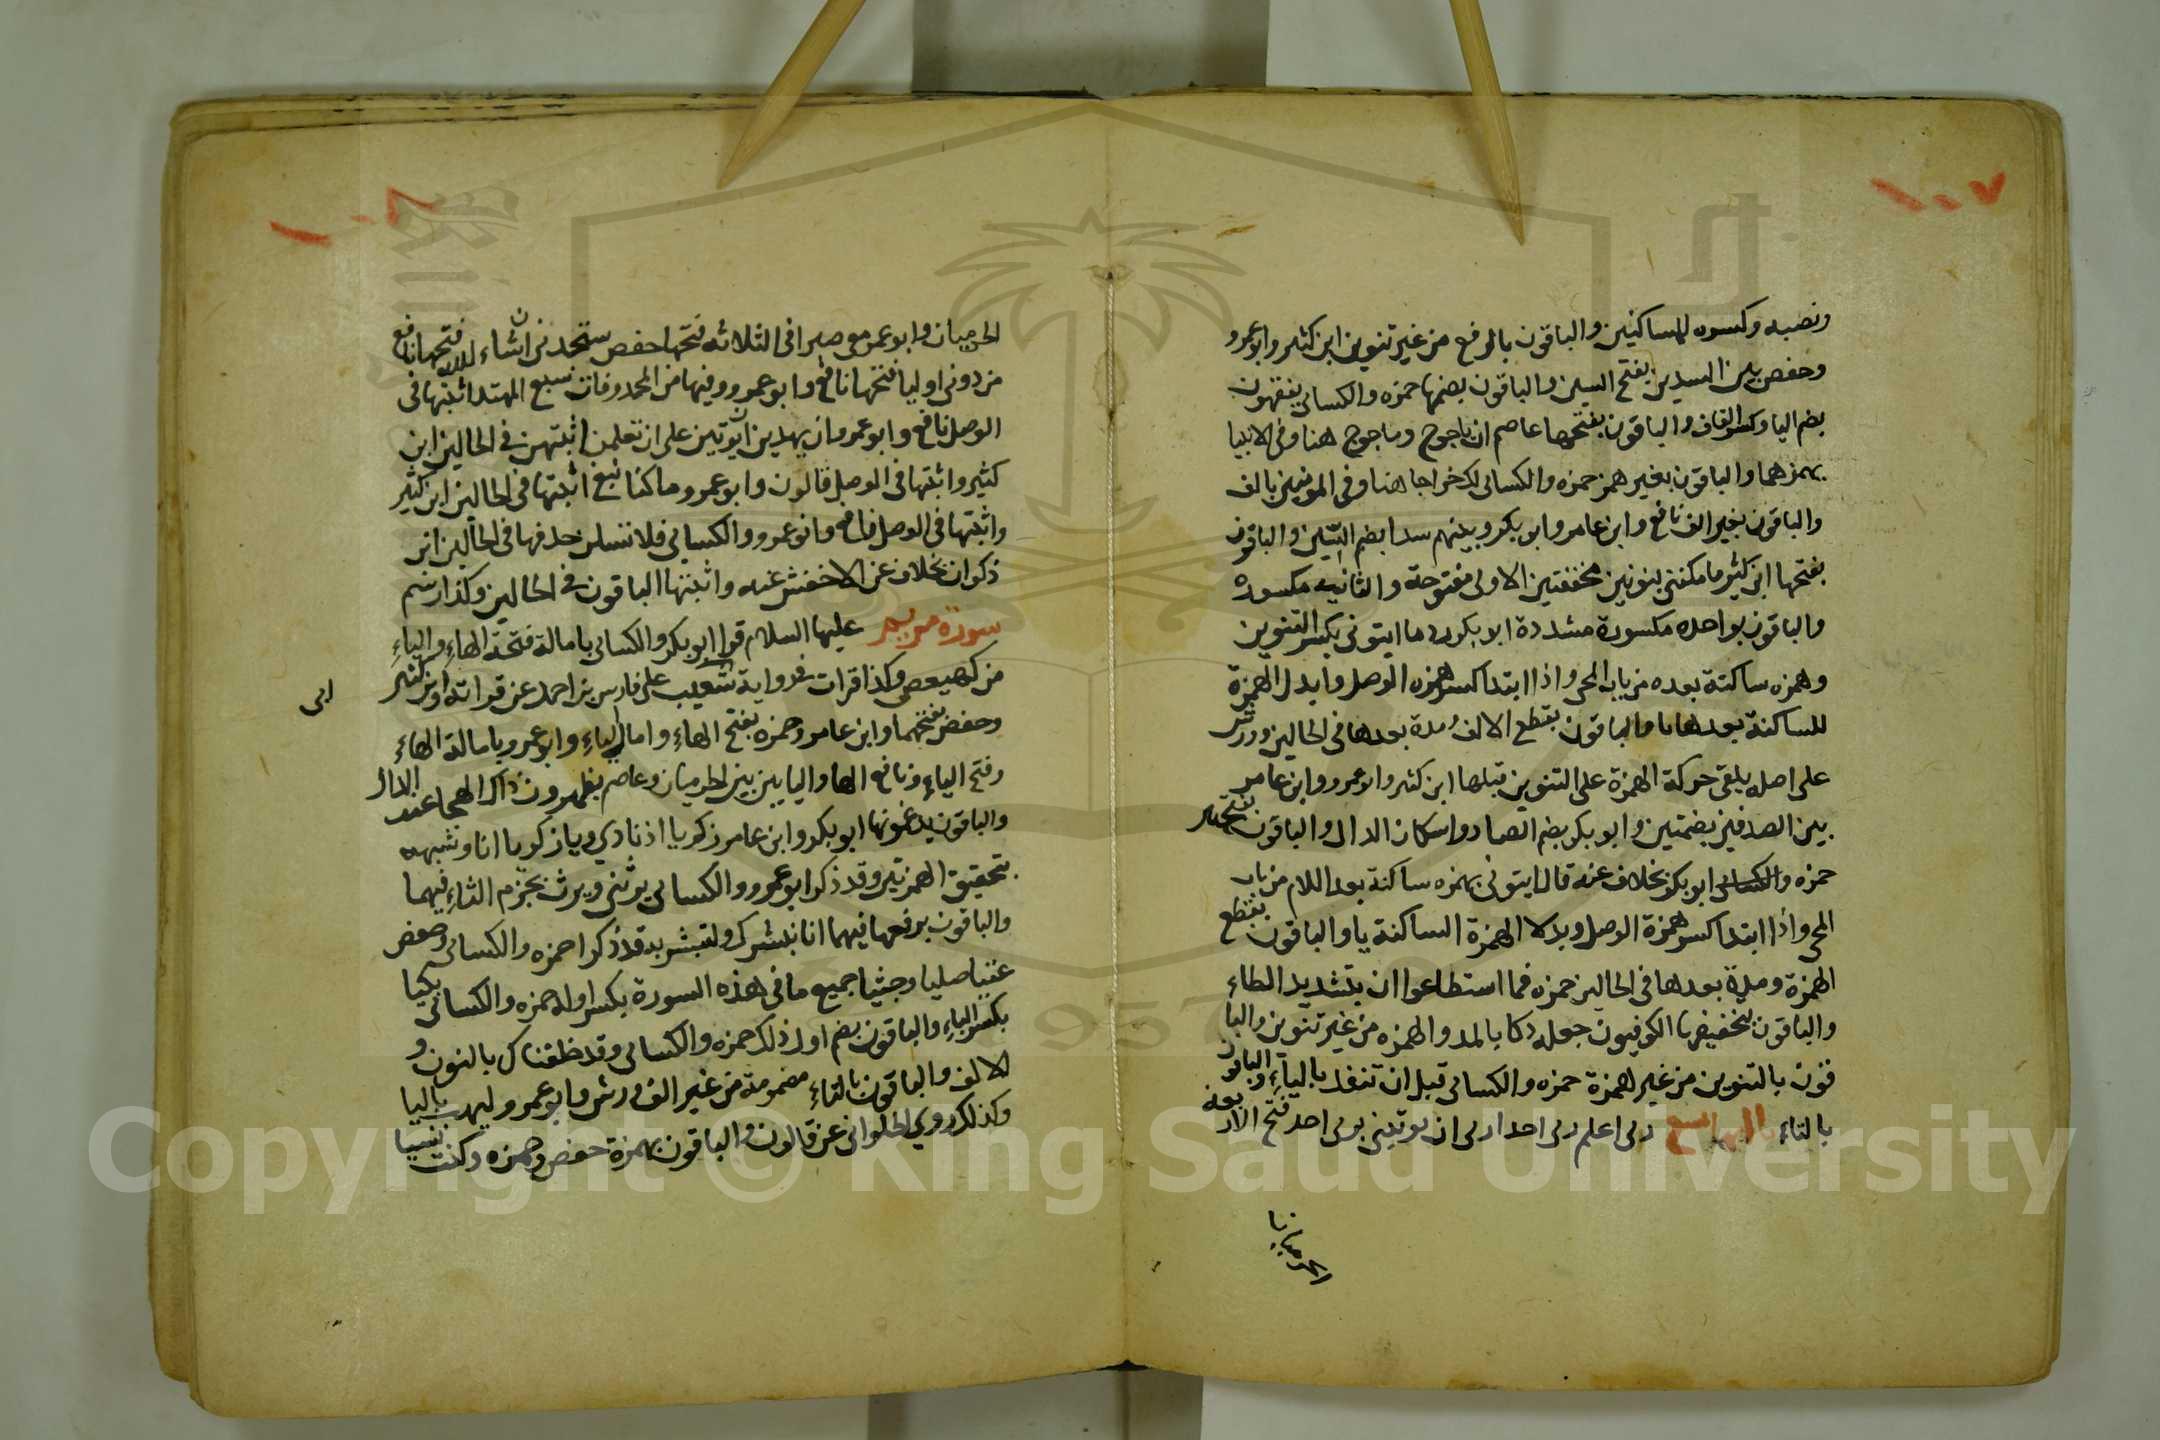 ١٠٧
ونصبه وكسره للساكنين والباقون بالرفع من غير تنوين ابن كثير وابو عمرو
وحفص بين السدين بفتح السين والباقون بضمها حمزه والكسائى يفقهون
بضم اليا وكسر القاف والباقون بفتحهما عاصم ان ياجوج وماجوج هنا وفى الانبيا
بهمزهما والباقون بغير همز حمزه والكسائى لك خراجا هنا وفى المومنين بالف
والباقون بغير الف نافع وابن عامر وابو بكر وبينهم سدا بضم السين والباقون
بفتحها ابن كثير ما مكننى بنونين مخففتين الاولى مفتوحة والثانيه مكسوره
والباقون بواحده مكسورة مشددة ابو بكر ردما ايتونى بكسر التنوين
وهمزه ساكنة بعده من باب المجى واذا ابتدا كسر همزه الوصل وابدل الهمزة
الساكنة بعدها يا والباقون بقطع الالف ومدة بعدها فى الحالين وورش
على اصله يلقى حركة الهمزة على التنوين قبلها ابن كثير وابو عمرو وابن عامر
بين الصدفين بضمتين وابو بكر بضم الصاد واسكان الدال والباقون بفتحتين
حمزه والكسائى ابو بكر بخلاف عنه قال ايتونى بهمزه ساكنة بعد اللام من باب
المجى واذا ابتدا كسر همزة الوصل وبدلا الهمزة الساكنة يا والباقون بقطع
الهمزة ومدة بعدها فى الحالين حمزه فما استطاعوا ان بتشديد الطاء
والباقون بتخفيفها الكوفيون جعله دكا بالمد والهمزه من غير تنوين والبا
قون بالتنوين من غير همزة حمزه والكسائى قبل ان تنفد بالياء والباقون
بالتاء ربى اعلم ربى احدا ربى ان يوتينى بربى احد فتح الاربعة
الحرميان
١٠٨
الحرميان وابو عمرو معى صبرا فى الثلاثه فتحها حفص ستجدنى ان شاء الله فتحها نافع
من دونى اوليا فتحها نافع وابو عمرو وفيها من المحذوفات سبع المهتد اثبتها فى
الوصل نافع وابو عمرو ان يهدين ان يوتين على ان تعلمن اثبتهن فى الحالين ابن
كثير واثبتها فى الوصل قالون وابو عمرو وما كنا نبغ اثبتها فى الحالين ابن كثير
واثبتها فى الوصل نافع وابو عمرو والكسائى فلا تسلن حذفها فى الحالين ابن
ذكوان بخلاف عن الاخفش عنه واثبتها الباقون فى الحالين وكذا رسم
سورة مريم عليها السلام قرا ابو بكر والكسائى بامالة فتحة الهاء والياء
من كهيعص وكذا قرات فى رواية شعيب على فارس بن احمد عن قراته وابن كثير
ابى
وحفص بفتحهما وابن عامر وحمزه بفتح الهاء وامال الياء وابو عمرو بامالة الهاء
وفتح الياء ونافع الها واليا بين بين الحرميان وعاصم يظهرون دال الهجا عند الذال
والباقون يدغمونها ابو بكر وابن عامر زكريا اذ نادى ويا زكريا انا وشبهه
بتحقيق الهمزتين وقد ذكر ابو عمرو والكسائى يرثنى ويرث بجزم الثاء فيهما
والباقون برفعها فيهما انا نبشرك ولتبشر به قد ذكرا حمزه والكسائى وحفص
عتيا صليا وجثيا جميع ما فى هذه السورة بكسر اوله حمزه والكسائى بكيا
بكسر الباء والباقون بضم اول ذلك حمزه والكسائى وقد خلقناك بالنون و
الالف والباقون بالتاء مضمومة من غير الف ورش وابو عمرو ليهب باليا
وكذلك روي الحلوانى عن قالون والباقون بهمزة حفص وحمزه وكنت نسيا
Copyright © King Saud University